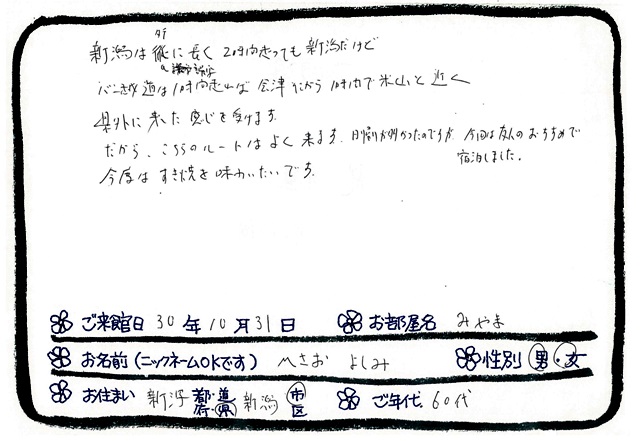 新潟は縦に長く 2時間走っても新潟だけど
磐越道は1時間走れば 会津だから 1時間で米山と近く
県外に来た感じを受けます
だから、こちらのルートはよく来ます、日帰りが多かったのですが 今回は友人のおすすめで
宿泊しました。
今度はすき焼を味わいたいです
ご来館日 30年10月31日 お部屋名 みやま
お名前(ニックネームOKです) ひさお よしみ 性別 男・女
お住まい 新潟 都・道 府・県 新潟 市 区 ご年代 60代